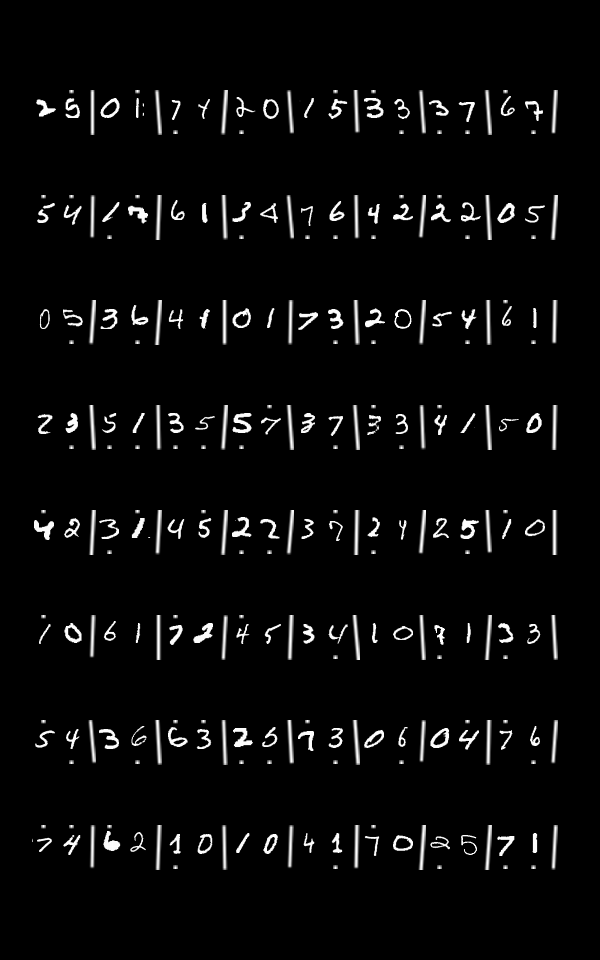 2 5 | 0 1 | 7 4 | 2 0 | 1 5 | 3 3 | 3 7 | 6 7 |
5 4 | 1 7 | 6 1 | 3 4 | 7 6 | 4 2 | 2 2 | 0 5 |
0 5 | 3 6 | 4 1 | 0 1 | 7 3 | 2 0 | 5 4 | 6 1 |
2 3 | 5 1 | 3 5 | 5 7 | 3 7 | 3 3 | 4 1 | 5 0 |
4 2 | 3 1 | 4 5 | 2 2 | 3 7 | 2 4 | 2 5 | 1 0 |
1 0 | 6 1 | 7 2 | 4 5 | 3 4 | 1 0 | 7 1 | 3 3 |
5 4 | 3 6 | 6 3 | 2 5 | 7 3 | 0 6 | 0 4 | 7 6 |
7 4 | 6 2 | 1 0 | 1 0 | 4 1 | 7 0 | 2 5 | 7 1 |